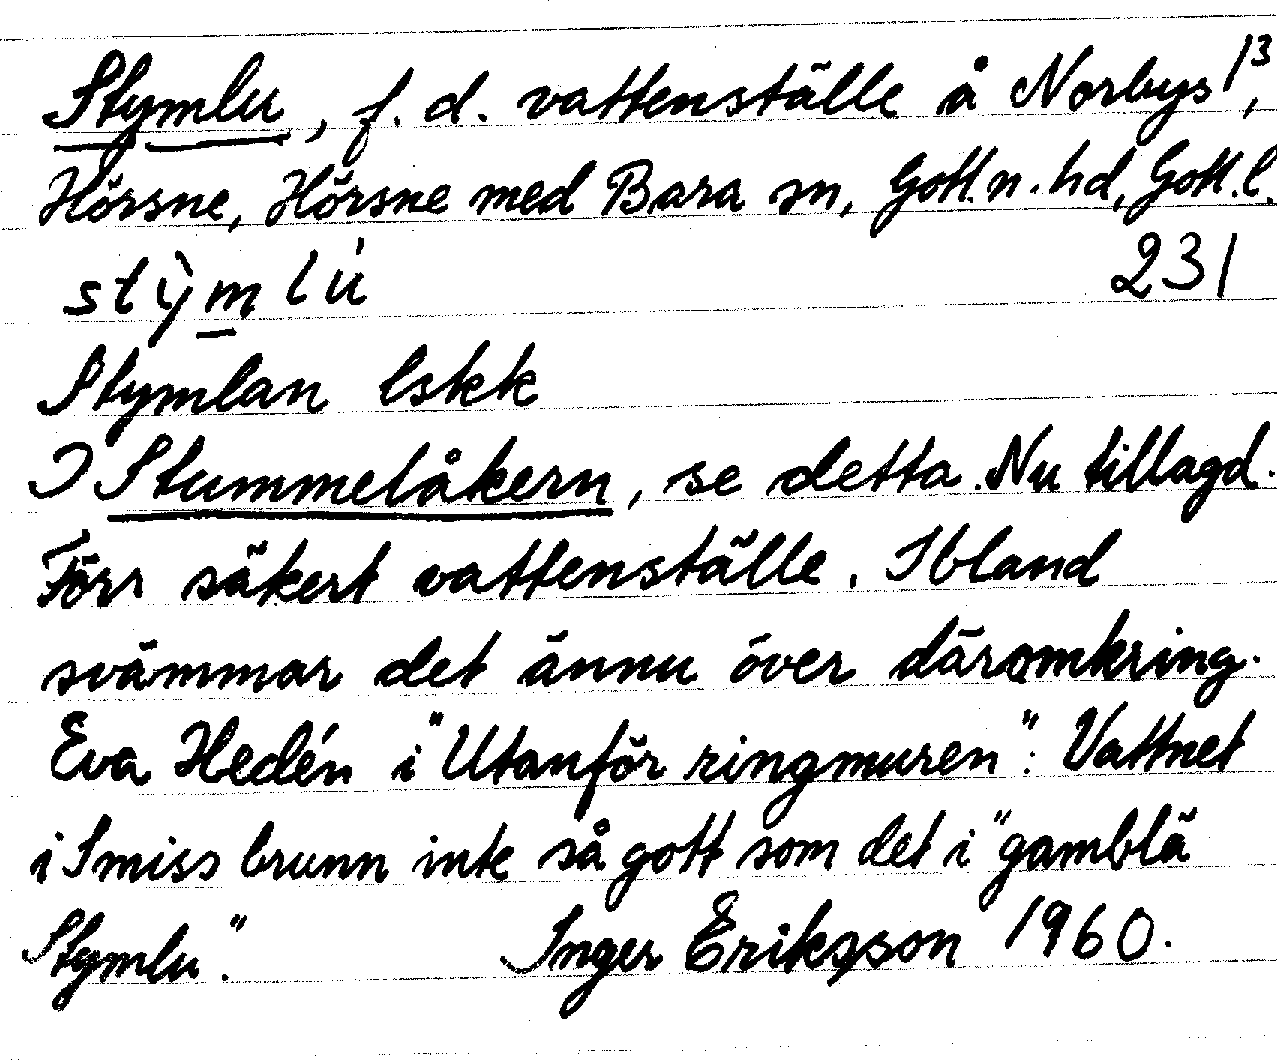 Stymlu, f. d. vattenställe å Norbys 1³,
Hörsne, Hörsne med Bara sn, Gotl. n. hd, Gotl. l.
stỳmlú 231
Stymlan lskk
I Stummelåkern, se detta. Nu tillagd.
Förr säkert vattenställe. Ibland
svämmar det ännu över däromkring.
Eva Hedén i "Utanför ringmuren": Vattnet
i Smiss brunn inte så gott som det i "gamblä
Stymlu".
Inger Eriksson 1960.